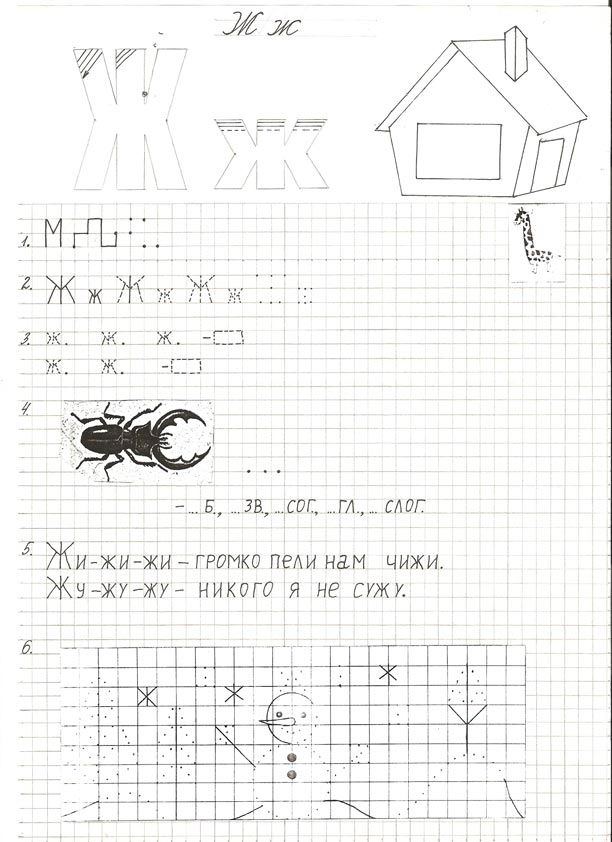 Ж ж
Ж ж
1. М
2. Ж ж Ж ж Ж ж
3. Ж. Ж. Ж. –
Ж. Ж. –
4.
...
– ... Б., ... ЗВ., ... СОГ., ... ГЛ., ... СЛОГ.
5. Жи-жи-жи – громко пели нам чижи.
Жу-жу-жу – никого я не сужу.
6.